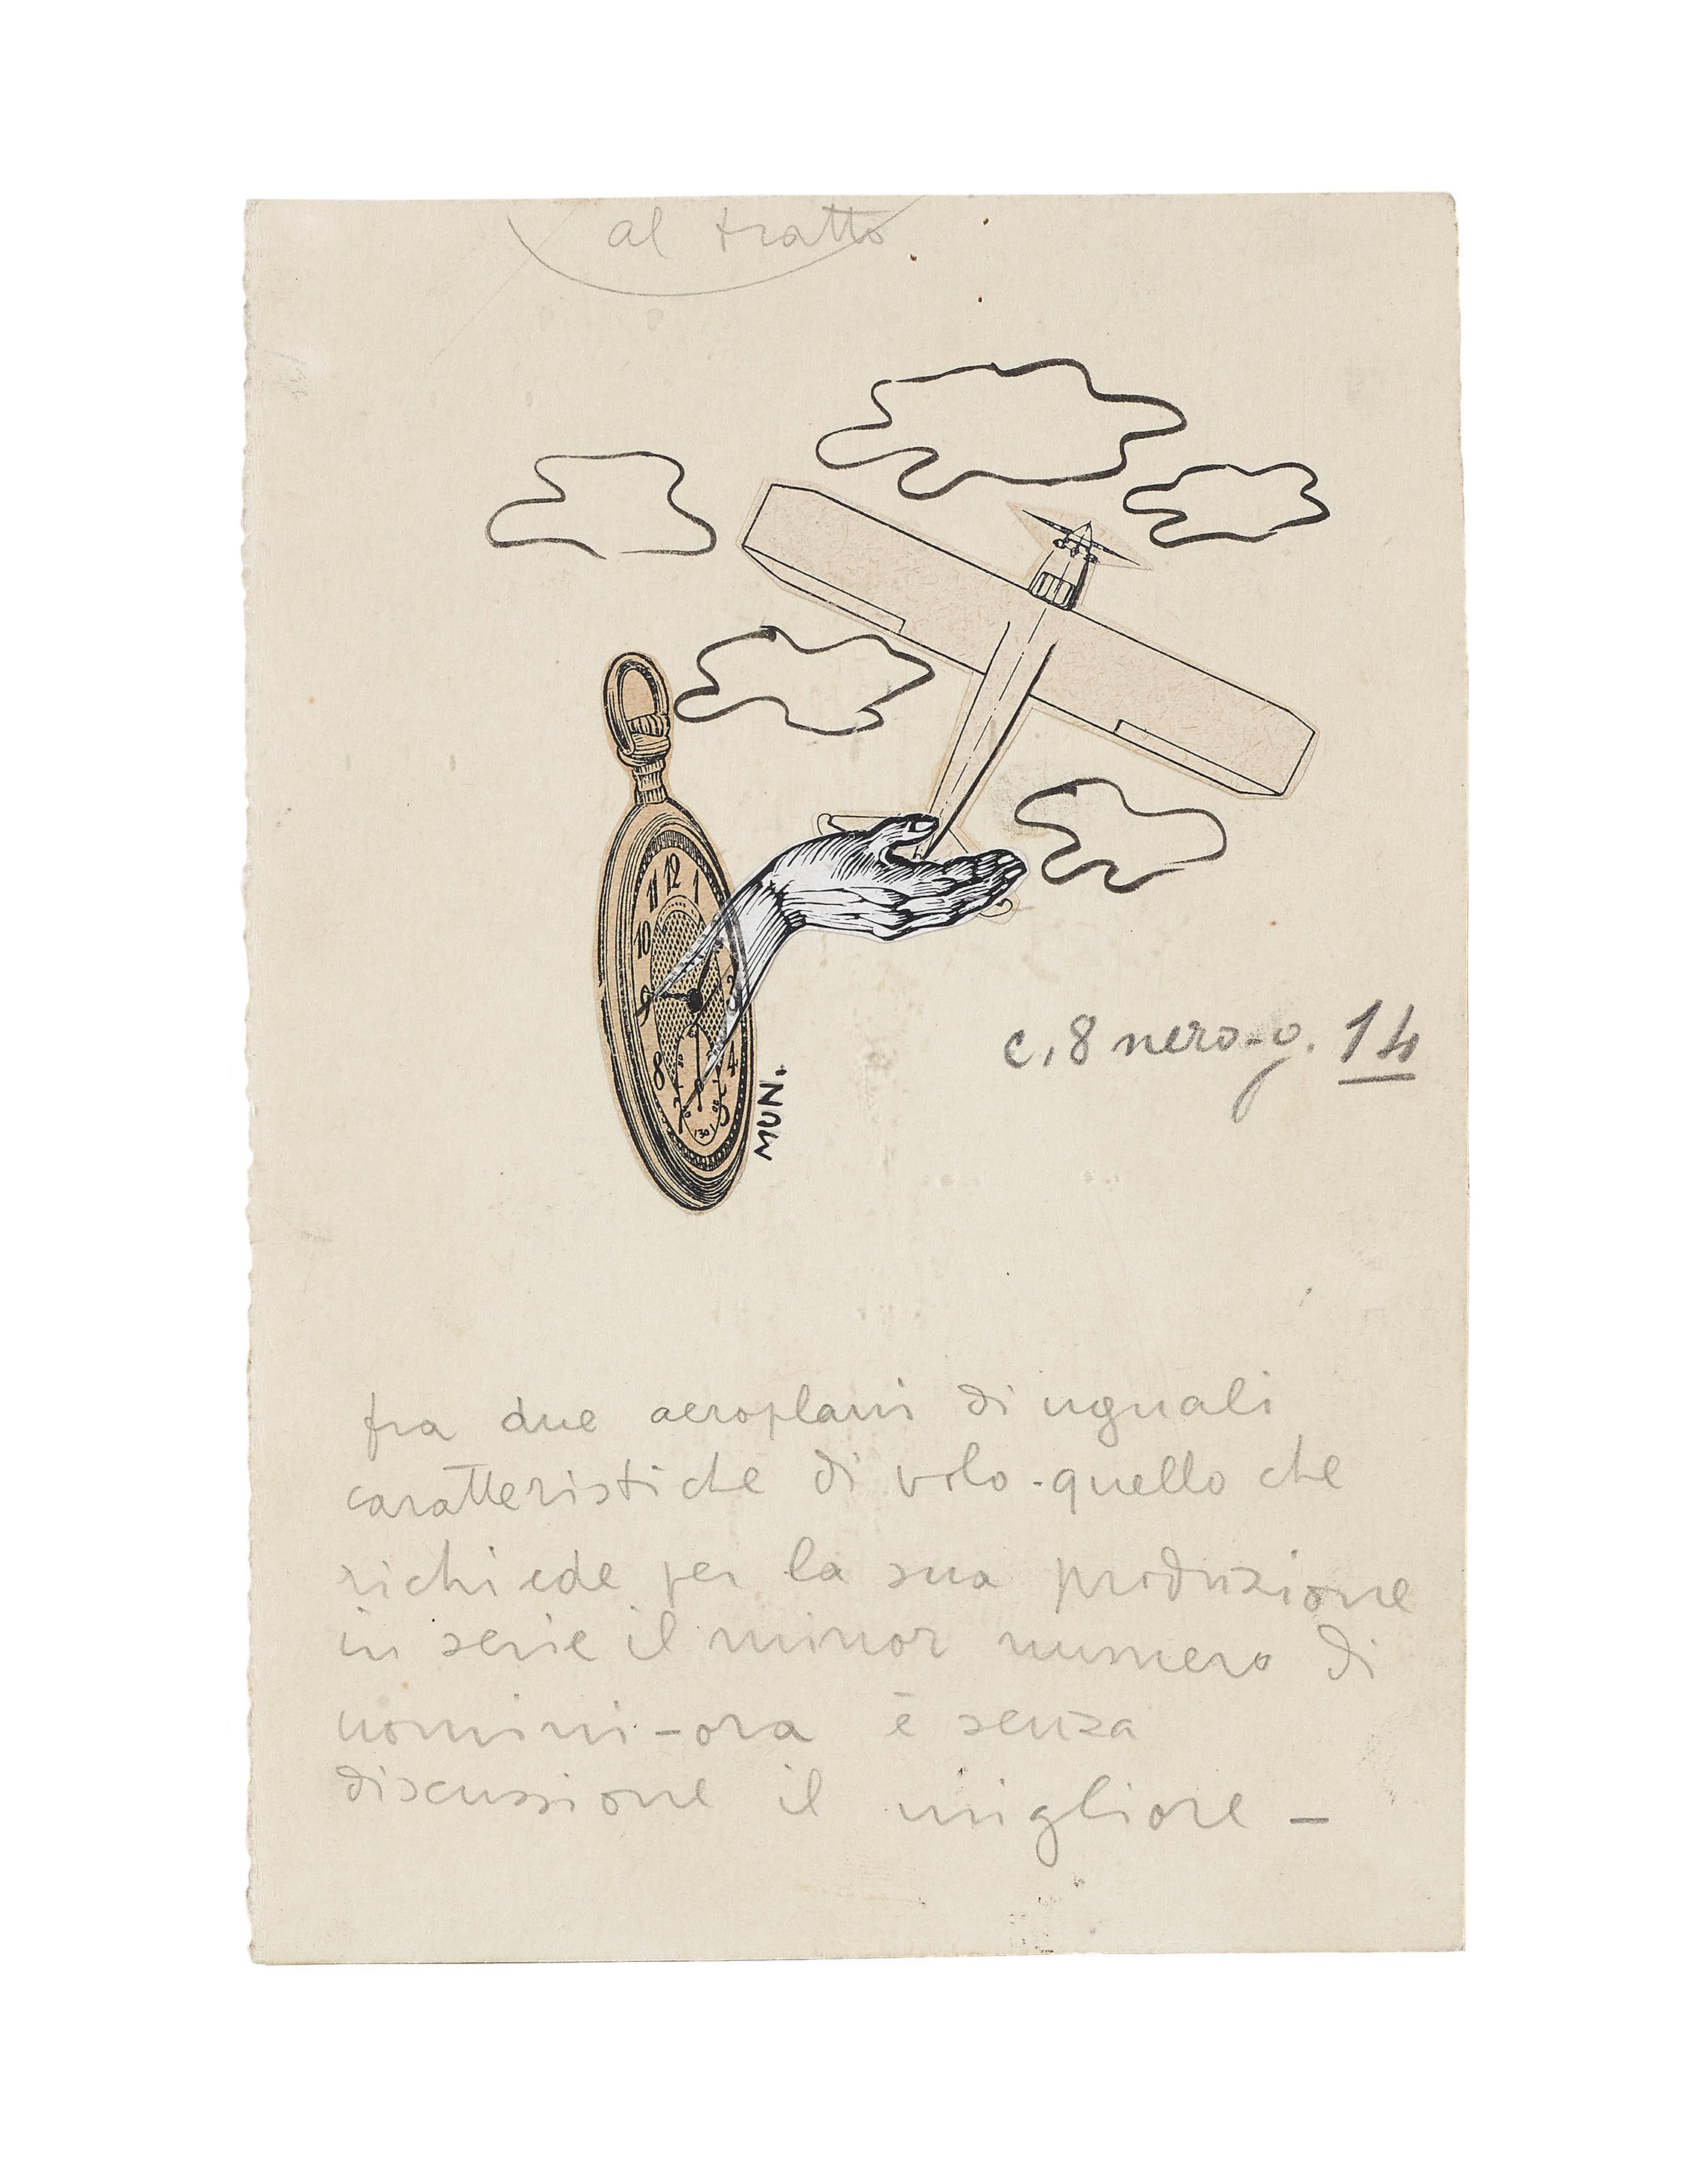 al tratto
12
11
1
10
9
3
8
4
30
MUN.
c. 8 nero-g. 14
fra due aeroplani di uguali
caratteristiche di volo - quello che
richiede per la sua produzione
in serie il minor numero di
uomini-ora è senza
discussione il migliore -